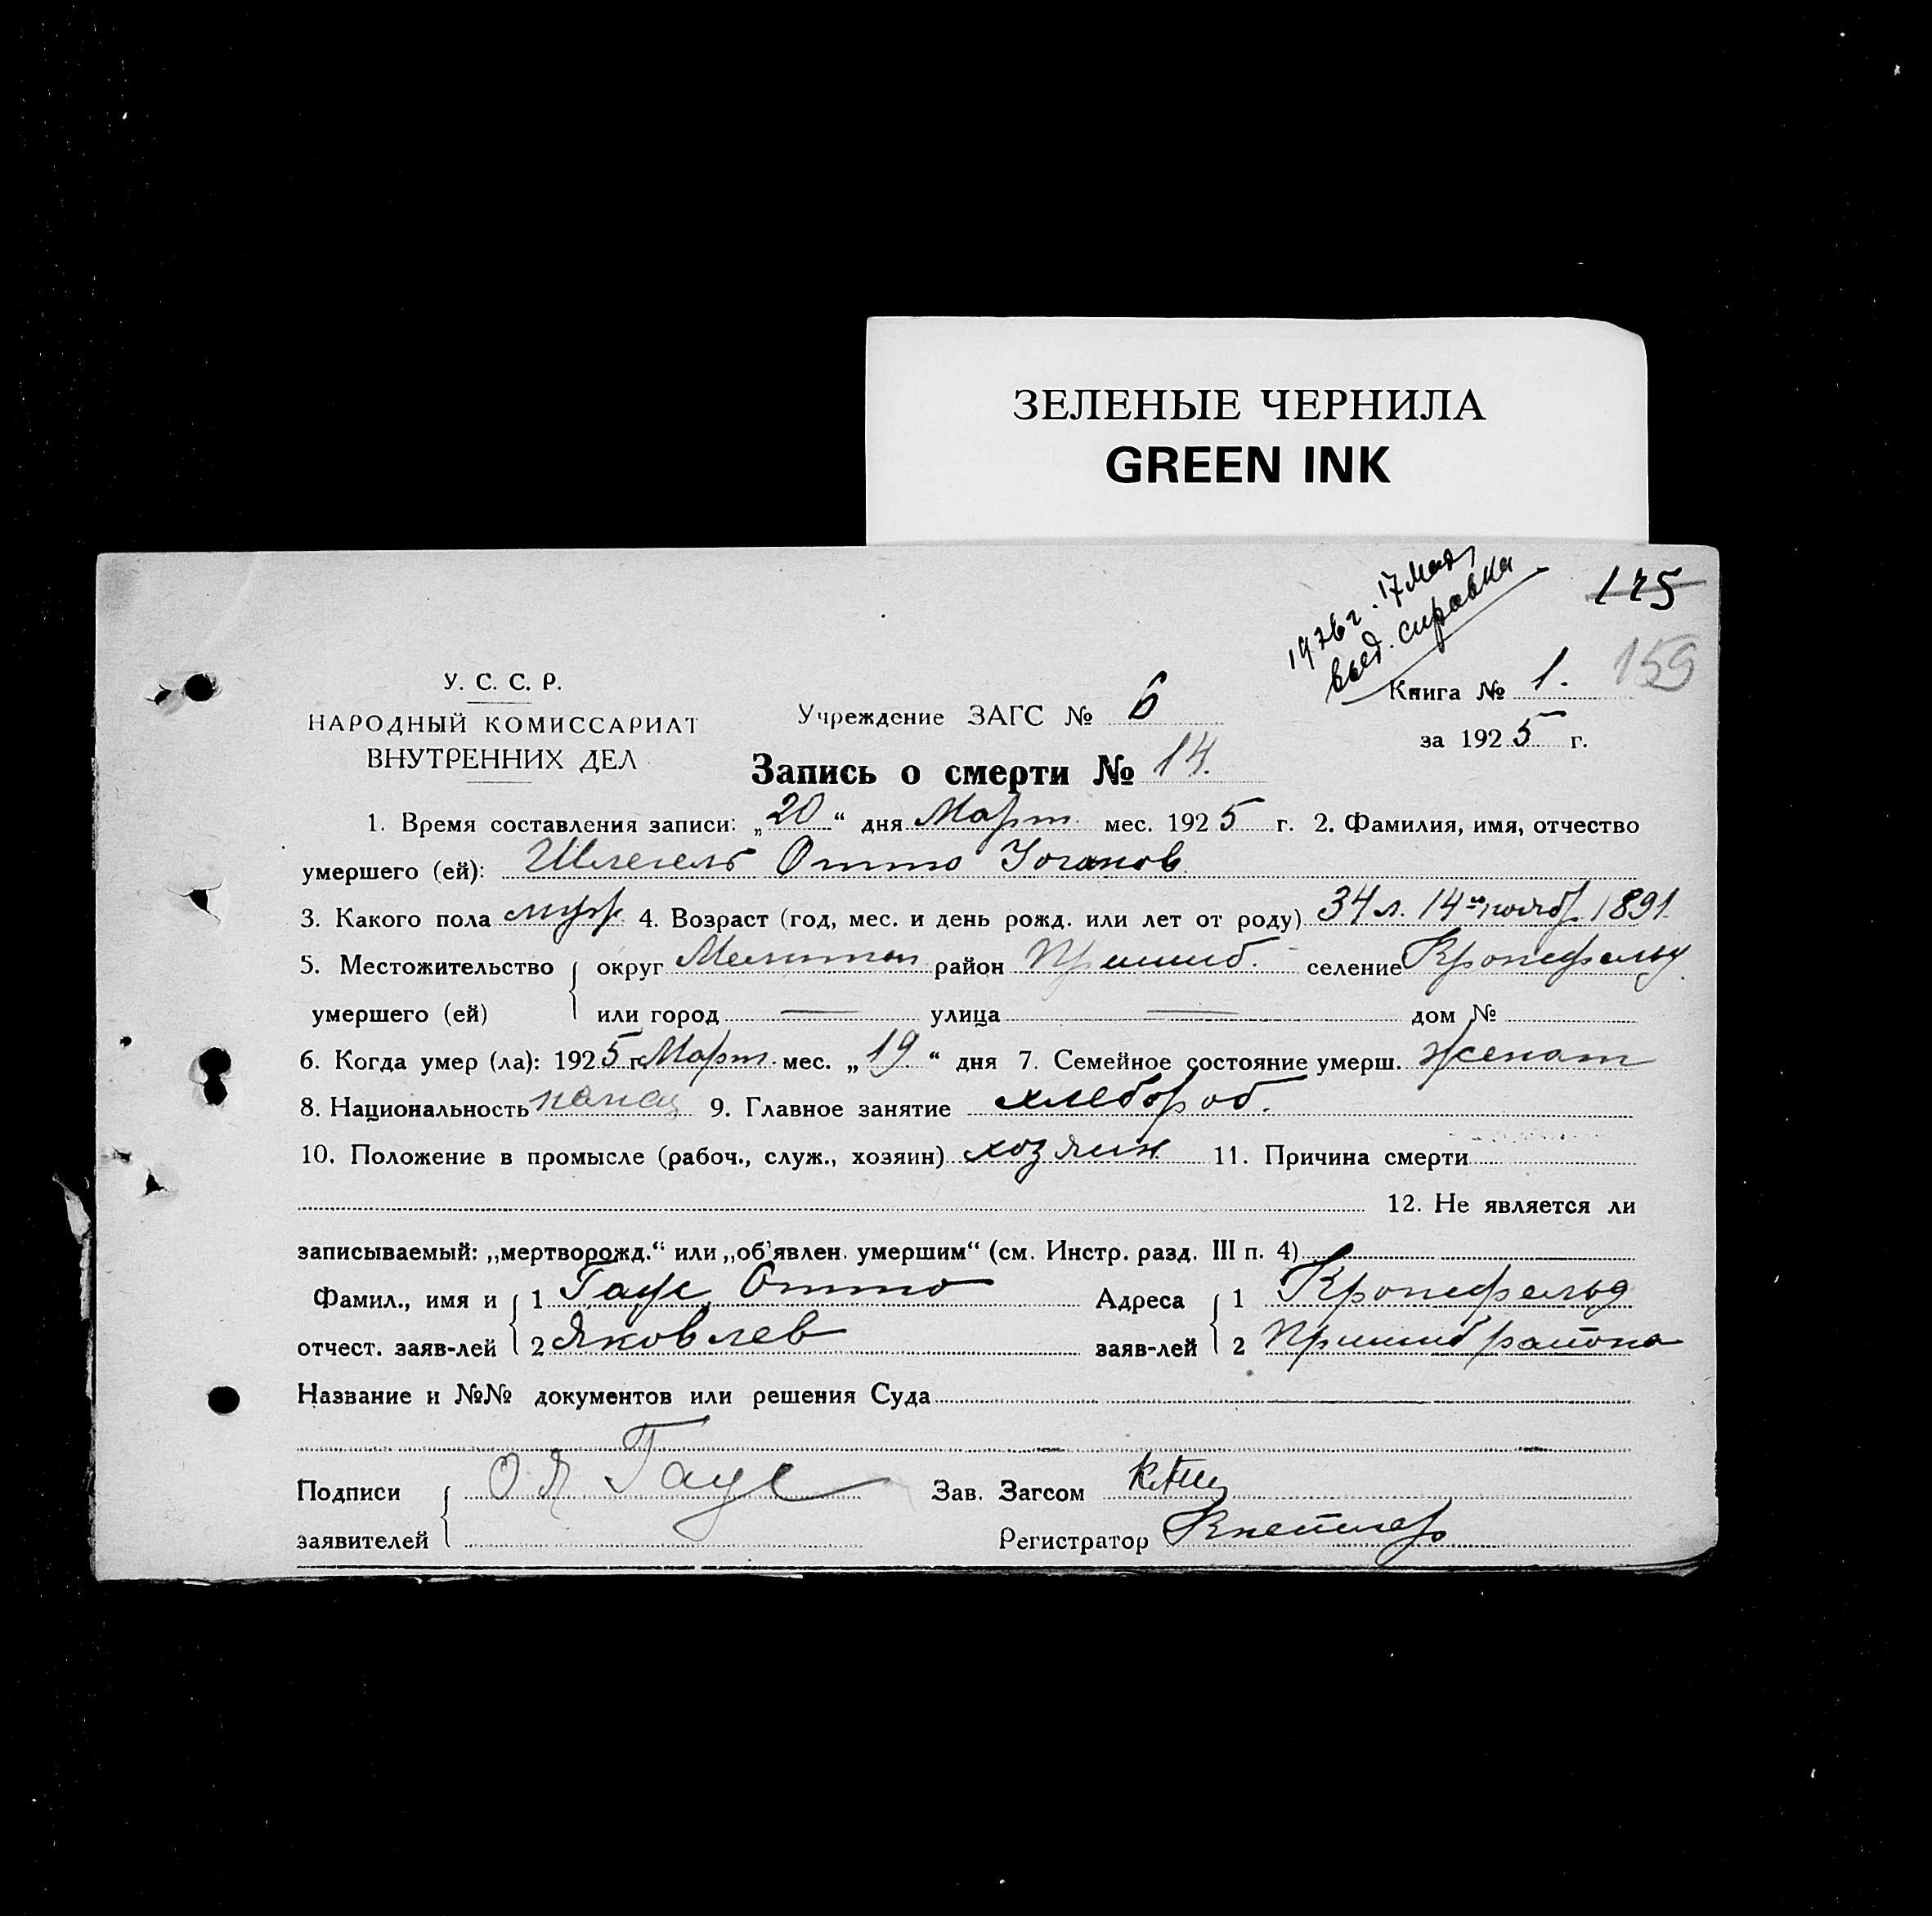 ЗЕЛЕНЫЕ ЧЕРНИЛА
GREEN INK
1926 г. 17 мая
выд. справка
125
159
У. С. С. Р.
НАРОДНЫЙ КОМИССАРИАТ
ВНУТРЕННИХ ДЕЛ
Учреждение ЗАГС № 6
Книга № 1.
за 1925 г.
Запись о смерти № 14.
1. Время составления записи: „20“ дня Март мес. 1925 г. 2. Фамилия, имя, отчество
умершего (ей): Шлегель Отто Иоганов
3. Какого пола муж 4. Возраст (год, мес. и день рожд. или лет от роду) 34 л. 14 ноябр 1891
5. Местожительство округ Мелитоп район Пришиб. селение Кронсфельд
умершего (ей) или город — улица — дом №
6. Когда умер (ла): 1925 г. Март мес. „19“ дня 7. Семейное состояние умерш. женат
8. Национальность 9. Главное занятие хлебороб.
10. Положение в промысле (рабоч., служ., хозяин) хозяин 11. Причина смерти
12. Не является ли
записываемый: „мертворожд.“ или „об'явлен. умершим“ (см. Инстр. разд. III п. 4)
Фамил., имя и 1 Гаус Отто Адреса 1 Кронсфельд
отчест. заяв-лей 2 Яковлев заяв-лей 2 Пришиб района
Название и №№ документов или решения Суда
Подписи О Я Гаус Зав. Загсом
заявителей Регистратор